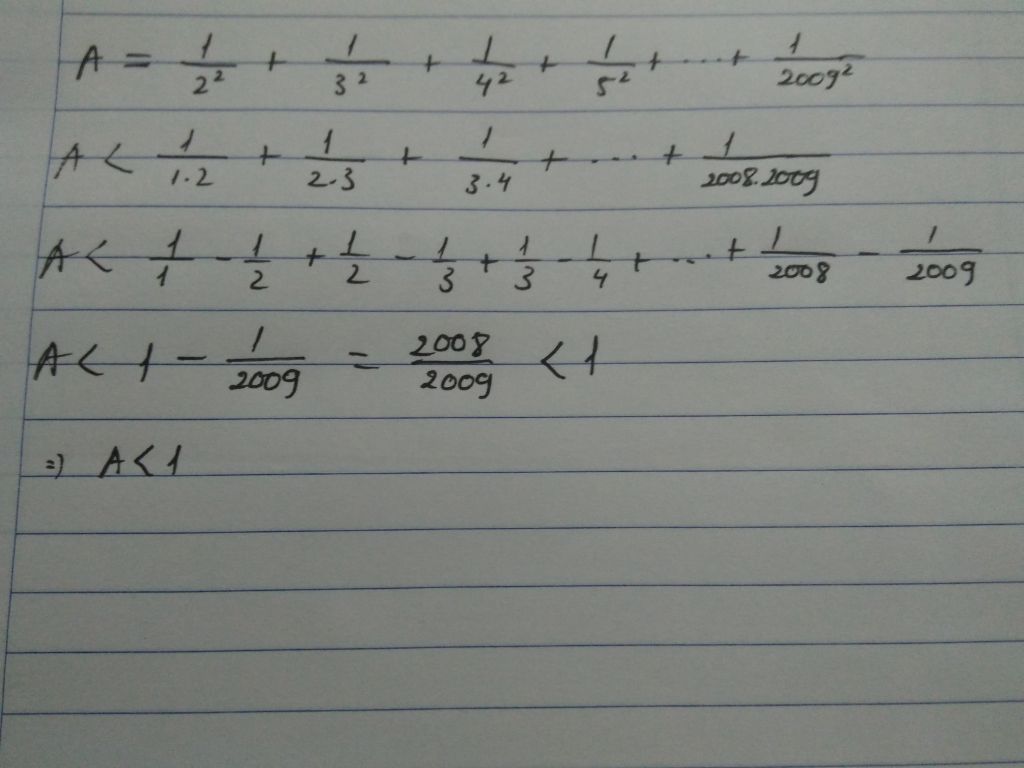 A = 1/2² + 1/3² + 1/4² + 1/5² + ... + 1/2009²
A < 1/1.2 + 1/2.3 + 1/3.4 + ... + 1/2008.2009
A < 1/1 - 1/2 + 1/2 - 1/3 + 1/3 - 1/4 + ... + 1/2008 - 1/2009
A < 1 - 1/2009 = 2008/2009 < 1
=) A < 1